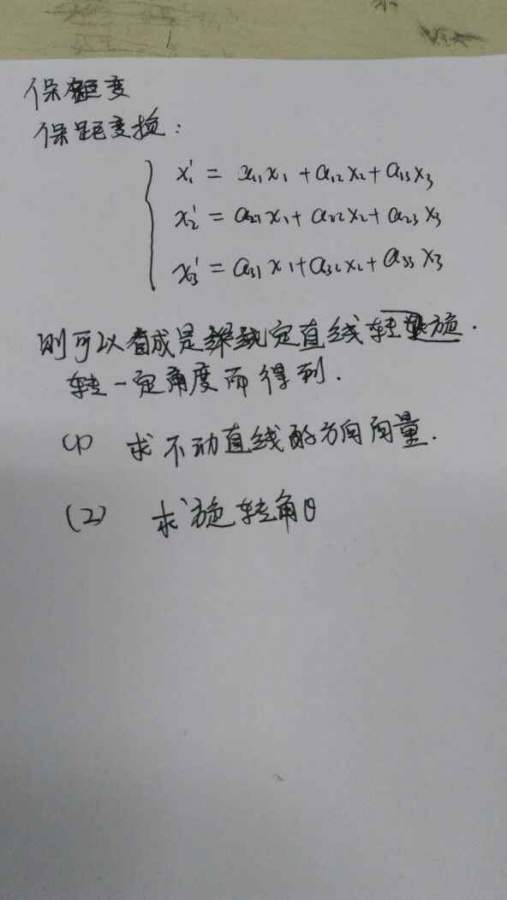 保距变
保距变换:
x₁' = a₁₁x₁ + a₁₂x₂ + a₁₃x₃
x₂' = a₂₁x₁ + a₂₂x₂ + a₂₃x₃
x₃' = a₃₁x₁ + a₃₂x₂ + a₃₃x₃
则可以看成是绕定直线旋
转一定角度而得到.
(1) 求不动直线的方向向量.
(2) 求旋转角θ